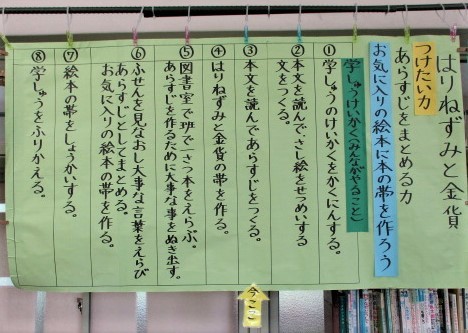 はりねずみと金貨
つけたい力
あらすじをまとめる力
お気に入りの絵本に本の帯を作ろう
学しゅうけいかく(みんながやること)
①学しゅうのけいかくをかくにんする。
②本文を読んで、さし絵をせつめいする
文をつくる。
③本文を読んであらすじをつくる。
④はりねずみと金貨の帯を作る。
⑤図書室で班で一さつ本をえらぶ。
あらすじを作るために大事な事をぬき出す。
⑥ふせんを見なおし大事な言葉をえらび
あらすじとしてまとめる。
お気に入りの絵本の帯を作る。
⑦絵本の帯をしょうかいする。
⑧学しゅうをふりかえる。
今ここ